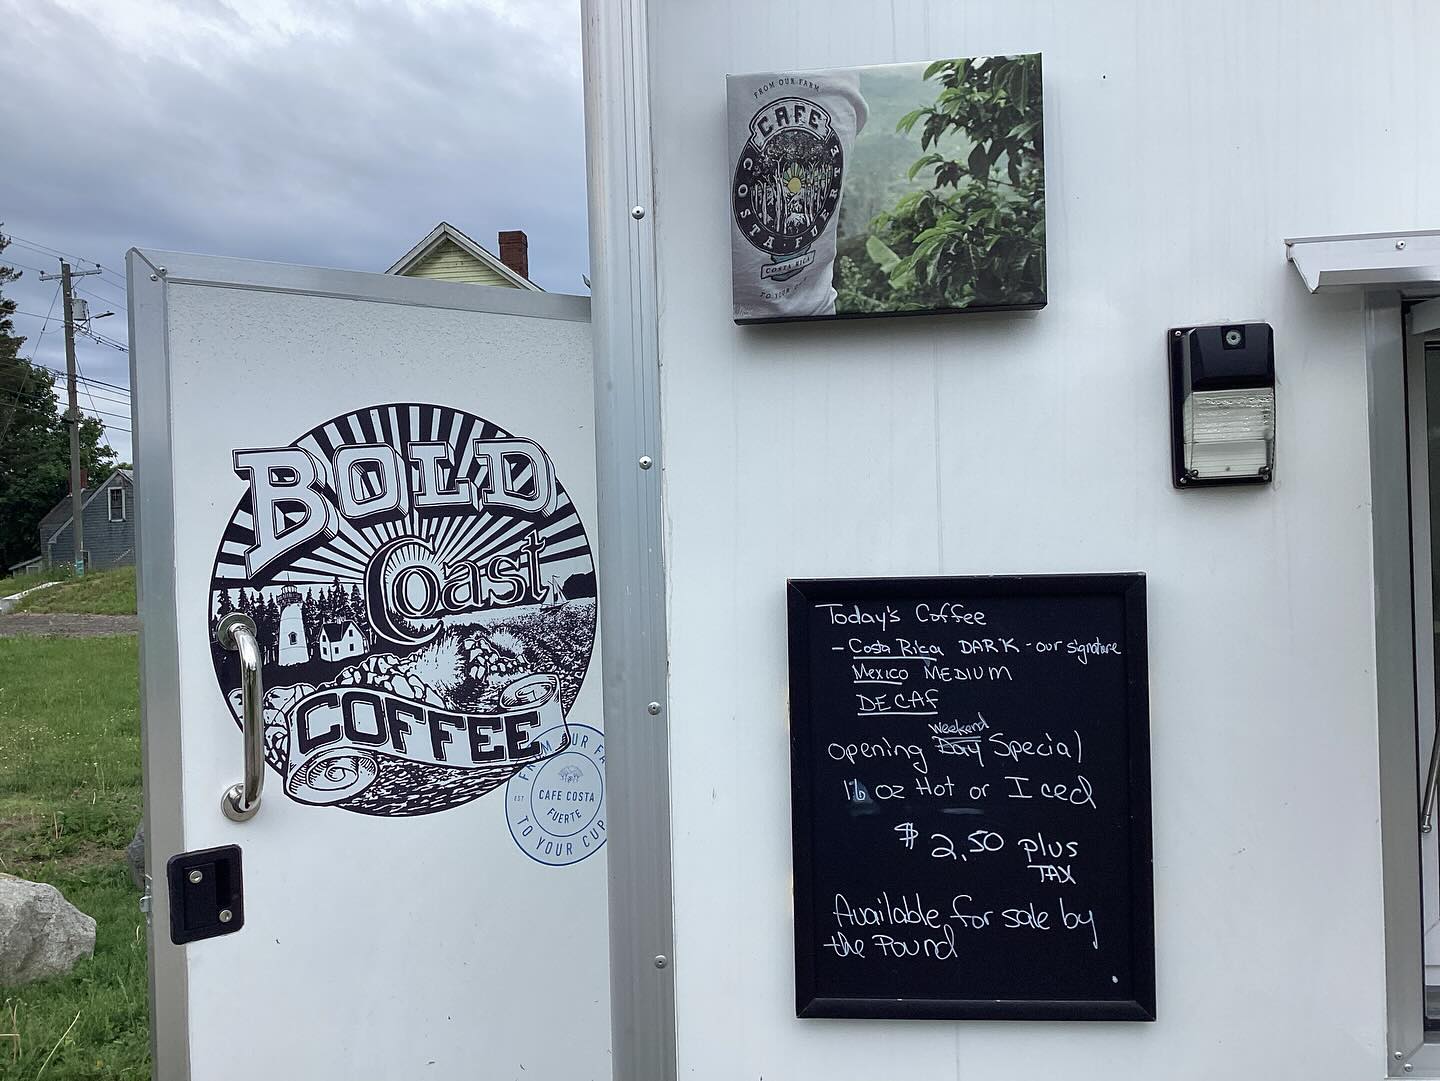 FROM OUR FARM
CAFE
COSTA FUERTE
COSTA RICA
TO YOUR CUP
BOLD
Coast
COFFEE
FROM OUR FA
EST
CAFE COSTA
FUERTE
TO YOUR CUP
Today's Coffee
- Costa Rica DARK - our signature
Mexico MEDIUM
DECAF
weekend
opening Day Special
16 oz Hot or Iced
$ 2.50 plus
TAX
Available for sale by
the Pound